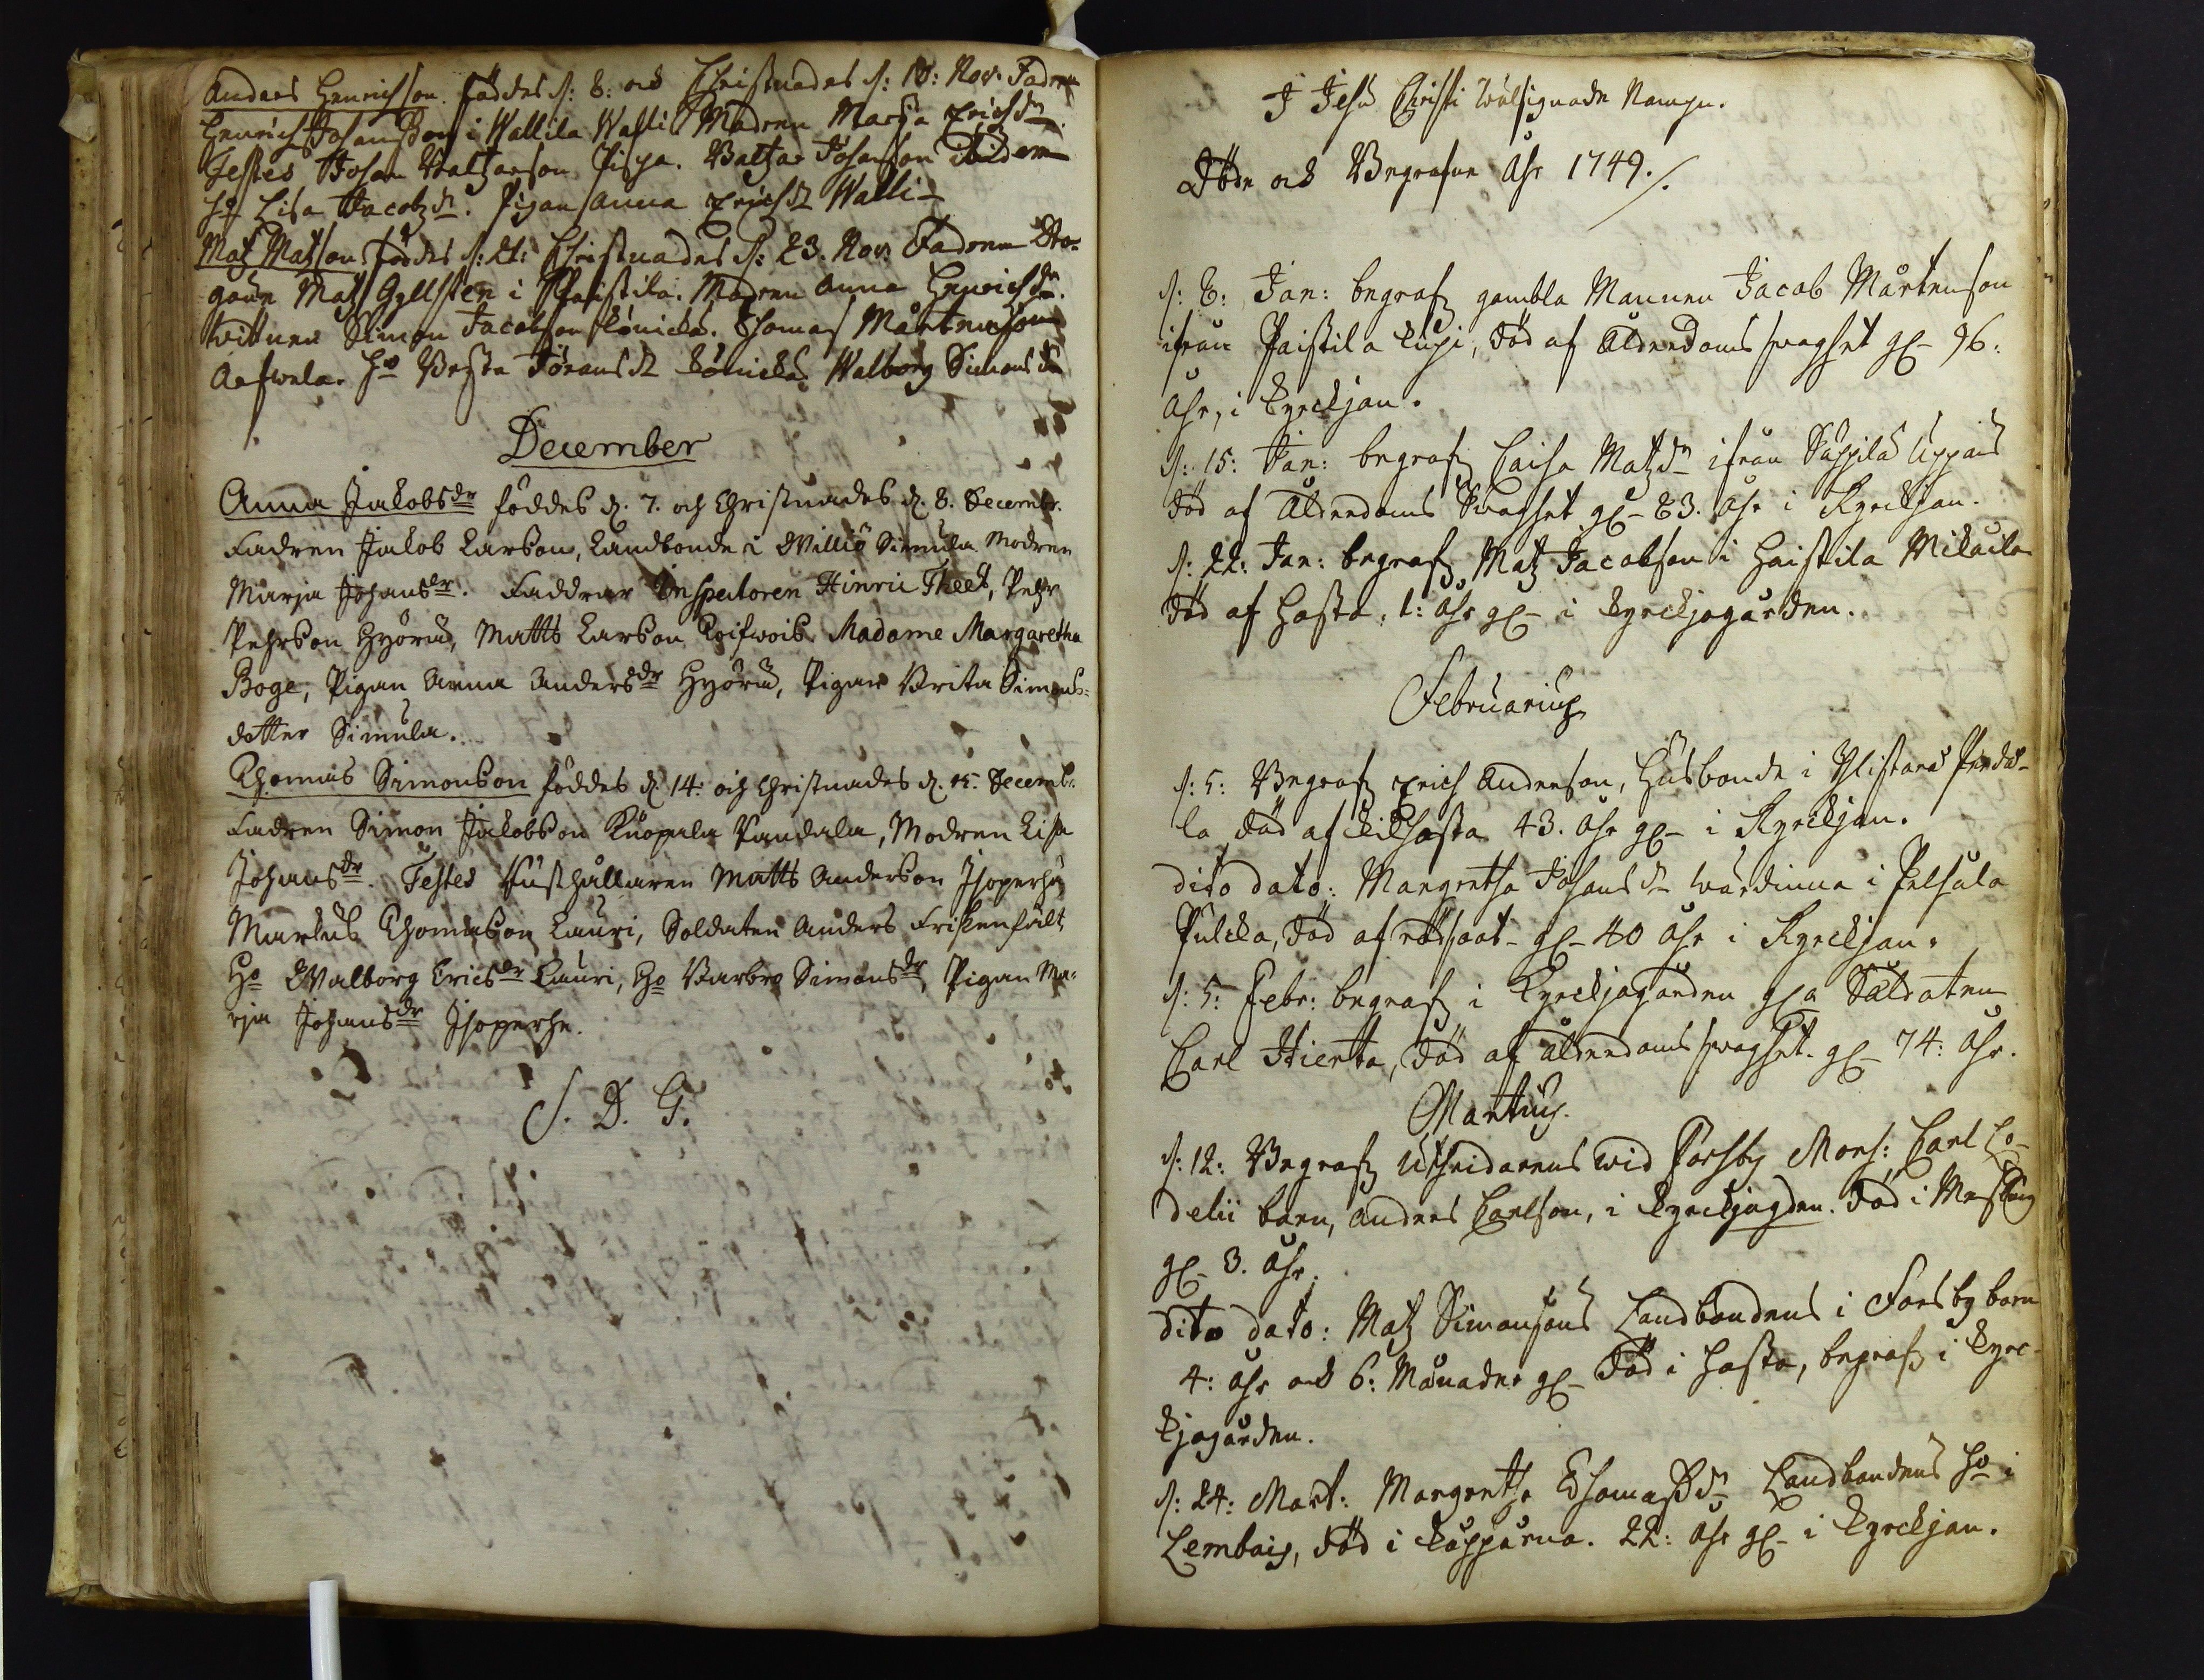 Anders Henrichson föddes d: 8: och Christnades d: 10: Nov: Fadren
Henrich Johansson i Wallila Walli Modren Marja Erichsdr
Testes Johan Baltzarson Pispa. Baltzar Johanson
ho Lisa Jacobzdr. Pigan Anna Erichsdr Walli
Matz Matson föddes d: 21: Christnades d: 23. Nov: Fadren Dra-
goun Matz Gyllsten i Haistila. Modren Anna Henrichsdr.
wittnen Simon Jacobson Könickä. Thomas Mårtenson
ho Beata Jöransdr Könickä. Walborg Simonsdr
December
Anna Jakobsdr föddes d. 7. och Christnades d. 8. Decembr.
Fadren Jakob Larson, Landbonde i Willio Simula Modren
Marja Johansdr. Faddrar Inspectoren Hinric Theet, Pehr
Pehrson Hyörid, Matts Larson Madame Margaretha
Boge, Pigan Anna Andersdr Hyörid, Pigan Brita Simons-
dotter Simula.
Thomas Simonson föddes d. 14. och Christnades d. 15. Decembr.
Fadren Simon Jakobson Kuopala Vandala, Modren Lisa
Johansdr. Testes Rusthållaren Matts Anderson Isoperhe
Markus Thomason Lauri, Soldaten Anders Friskenfält
Ho Walborg Ericsdr Lauri, Ho Barbro Simonsdr, Pigan Ma-
rja Johansdr Isoperhe.
S. D. G.
I Jesu Christi wälsignade Nampn.
Döde och Begrafne Åhr 1749./.
d: 8: Jan: begrafz gambla Mannen Jacob Mårtenson
ifrån Haistila Cupi, död af Ålderdoms swaghet gl- 96:
Åhr, i Kyrckjan.
d: 15: Jan: begrafz Caisa Matzdr ifrån Suppila Uppais
död af Ålderdoms Swaghet gl- 83. Åhr i Kyrckjan.
d: 22: Jan: begrafz Matz Jacobson i Haistila Mikaila
död af hosta, 1: Åhr gl- i Kyrckjogården.
Februarius
d: 5: Begrafz Erich Anderson, Husbonde i Ylistaro Pendä-
la död af Kikhosta 43. Åhr gl- i Kyrckjan.
dito dato: Margretha Johansdr wärdinna i Pelsala
Pulcka, död af rödsoot- gl- 40 Åhr i Kyrckjan.
d: 5: Febr: begrafz i Kyrckjogården gla Saldaten
Carl Hierta, död af ålderdoms swaghet. gl- 74: Åhr.
Martius.
d: 12: Begrafz Uthridarens wid Forsby Mons: Carl Co-
delii barn, Anders Carlson, i Kyrckjogden. död i Messling
gl- 3. Åhr.
dito dato: Matz Simonsons Landbondens i Forsby barn
4: Åhr och 6: Månader gl- död i hosta, begrafz i Kyrc-
kjogården.
d: 24: Mart: Margretha Thomaßdr Landbondens ho i
Lembois, död i Kopporna. 22: Åhr gl- i Kyrckjan.